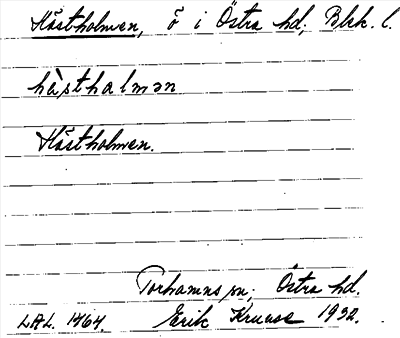 Hästholmen, ö i Östra hd, Blek. l.
hàsthalmən
Hästholmen.
Torhamns sn; Östra hd.
LAL. 1764. Erik Kruuse 1932.